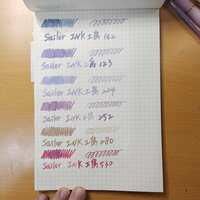 Sailor Ink工房 162
Sailor Ink工房 123
Sailor Ink工房 224
Sailor Ink工房 252
Sailor Ink工房 280
Sailor Ink工房 540